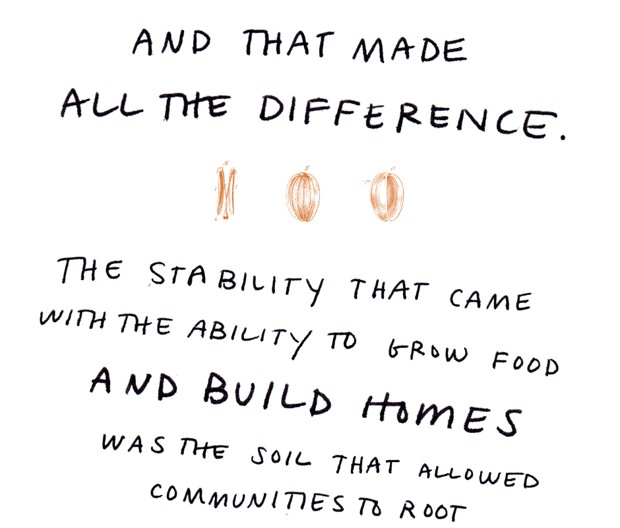 AND THAT MADE
ALL THE DIFFERENCE.
THE STABILITY THAT CAME
WITH THE ABILITY TO GROW FOOD
AND BUILD HOMES
WAS THE SOIL THAT ALLOWED
COMMUNITIES TO ROOT